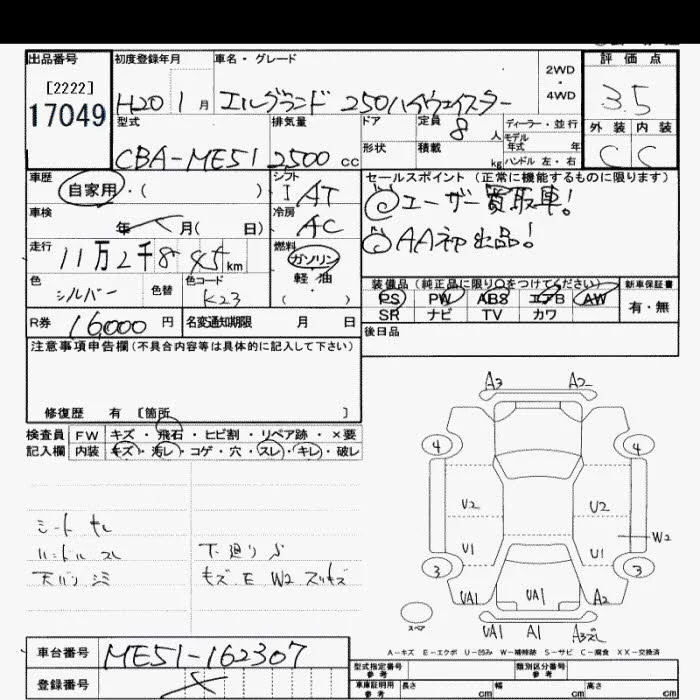 出品番号 初度登録年月 車名・グレード 2WD・4WD 評価点
[2222]
17049 H20 1月 エルグランド 250ハイウェイスター 3.5
型式 排気量 ドア 定員 8人 ディーラー・並行 外装 内装
モデル年式 年
CBA-ME51 2500cc 形状 積載 kg ハンドル 左・右 C C
車歴 自家用・( ) シフト I AT セールスポイント(正常に機能するものに限ります)
◎ユーザー買取車!
車検 年 月( 日) 冷房 AC
◎AA初出品!
走行 11万2千845km 燃料 ガソリン・軽油・( )
色 シルバー 色替 色コード K23
装備品(純正品に限り○をつけてください) 新車保証書
PS PW ABS エアB AW 有・無
SR ナビ TV カワ
R券 16,000円 名変通知期限 月 日
後日品
注意事項申告欄(不具合内容等は具体的に記入して下さい)
修復歴 有 [箇所 ]
検査員 FW キズ・飛石・ヒビ割・リペア跡・×要
記入欄 内装 キズ・汚レ・コゲ・穴・スレ・キレ・破レ
シート キレ
ハンドル スレ 下廻り S
天バリ シミ キズ E W2 スリキズ
A3 A2
4 4
V2 U2
W2
U1 U1
3 3
UA1 UA1 A2
スペア
UA1 A1 A3ズレ
A-キズ E-エクボ U-凹み W-補修跡 S-サビ C-腐食 XX-交換済
車台番号 ME51-162307
登録番号
型式指定番号 参考 類別区分番号 参考
車庫証明用 参考 長さ cm 幅 cm 高さ cm